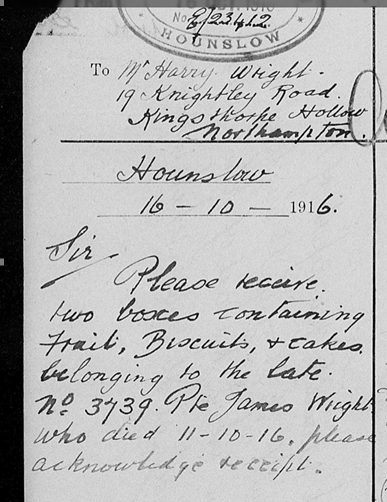 No E/2342
HOUNSLOW
To Mr Harry Wright.
19 Knightley Road.
Kingsthorpe Hollow
Northampton
Hounslow
16 - 10 - 1916.
Sir
Please receive.
two boxes containing
Fruit, Biscuits, & cakes.
belonging to the late.
No 3739. Pte James Wright
who died 11-10-16. please
acknowledge receipt.